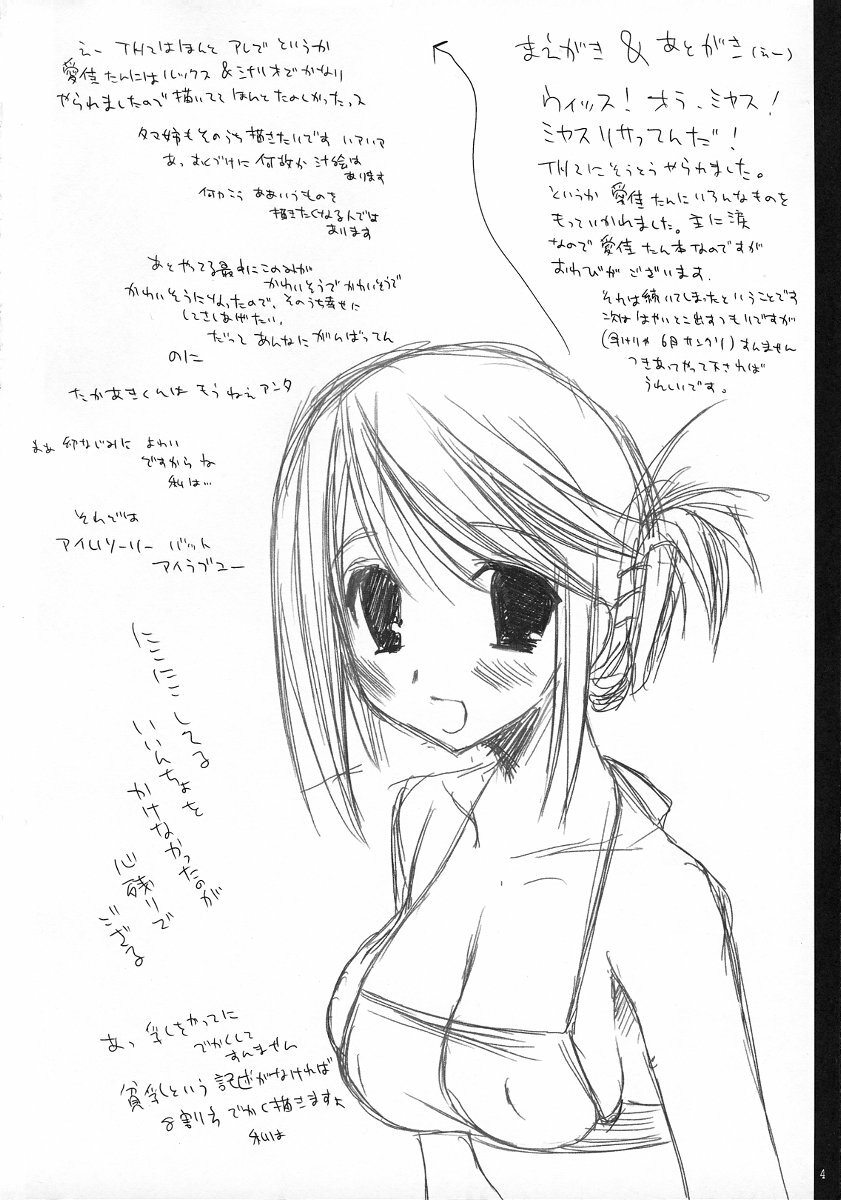 まえがき & あとがき(えー)
ウィッス! オラ、ミヤス!
ミヤスリサってんだ!
TH2にそうとうやられました。
というか 愛佳たんにいろんなものを
もっていかれました。主に涙
なので愛佳たん本なのですが
おわびがございます.
それは続いてしまったということです
次は はやいとこ出すつもりですが
6月サンクリ)すんません
つきあってやって下されば
うれしいです。
えー TH2はほんと アレで というか
愛佳たんにはルックス&シナリオでかなり
やられましたので描いてて ほんとたのしかったっス
タマ姉もそのうち描きたいです いアいア
あります
何かこう ああいうものを
描きたくなるんでは
あります
あとやってる最中にこのみが
かわいそうでかわいそうで
かわいそうになったので、そのうち幸せに
してさしあげたい。
だって あんなにがんばってん
のに
たかあきくんは もうねえアンタ
まぁ 幼なじみに よわい
ですからね
私は…
それでは
アイムソーリー バット
アイラブユー
にこにこしてる
いいんちょを
かけなかったのが
心残りで
ござる
あっ 乳をかってに
でかくして
すんません
貧乳という記述がなければ
8割方 でかく描きますよ
私は
4